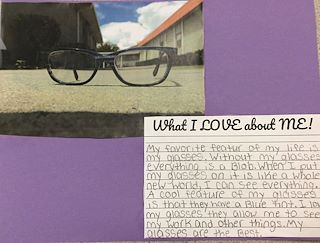 What I LOVE about ME!
My favorite featur of my life is
my glasses. Without my glasses
everything is a Blob. When I put
my glasses on it is like a whole
new world, I can see everything.
A cool feature of my glasses
is that they have a Blue Tint. I lov
my glasses they allow me to see
my work and other things. My
glasses are the Best.